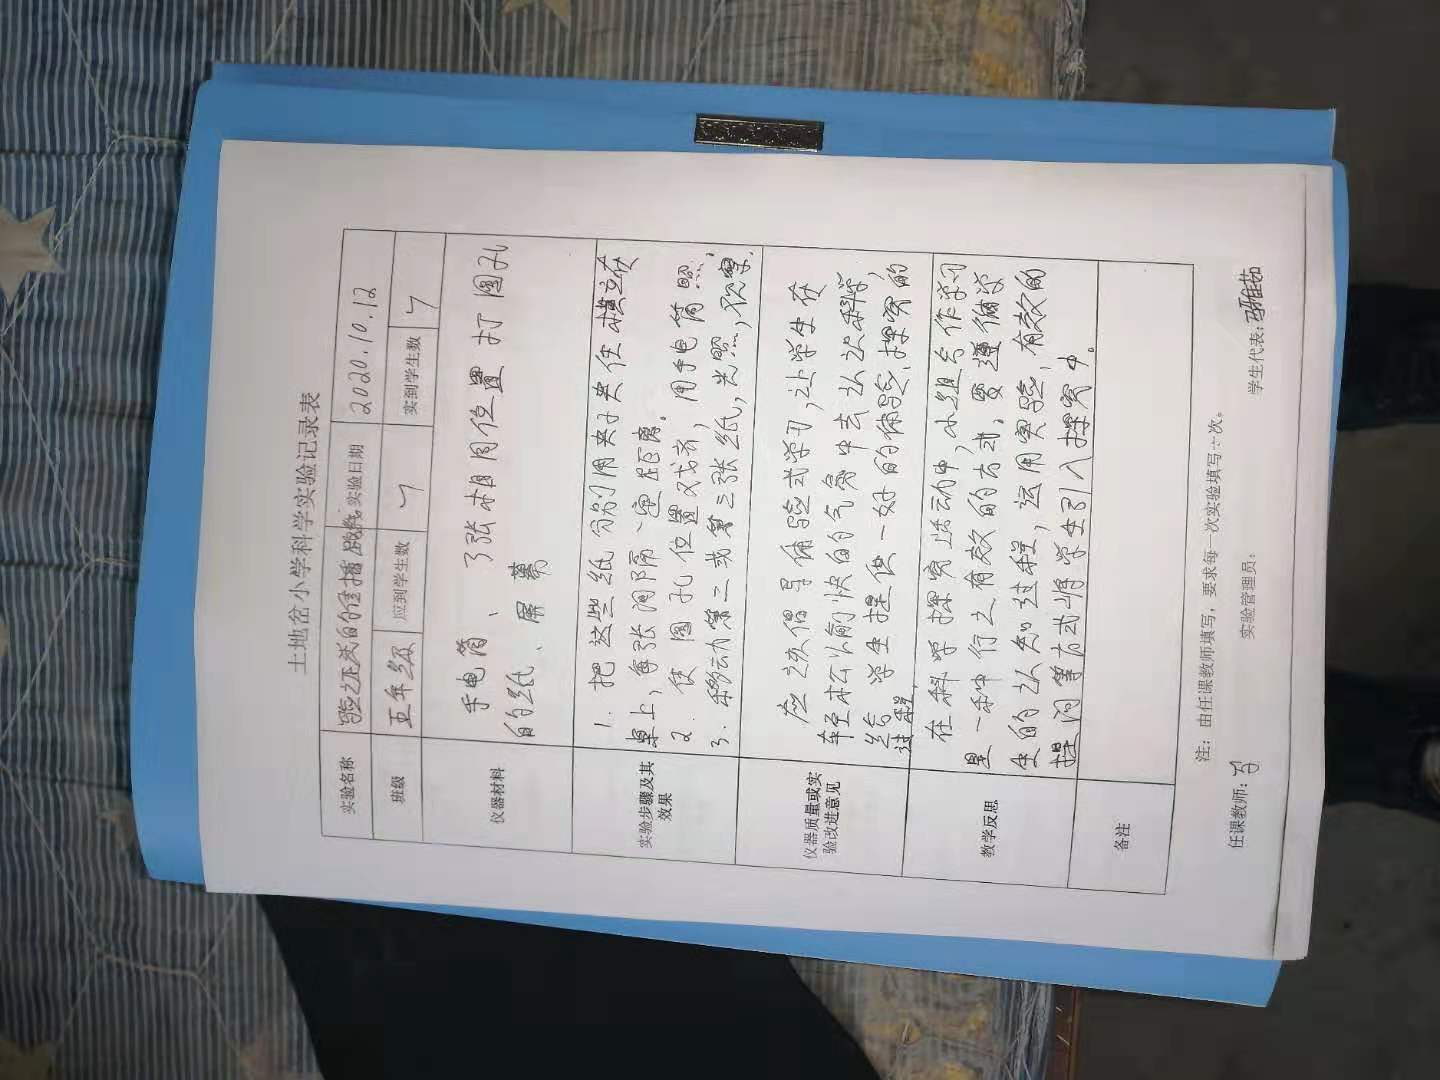 土地岔小学科学实验记录表
实验名称 验证光的传播路线 实验日期 2020.10.12
班级 五年级 应到学生数 7 实到学生数 7
仪器材料
手电筒、 3张相同位置打圆孔
的纸、屏幕
实验步骤及其
效果
1. 把这些纸分别用夹子夹住横立在
桌上,每张间隔一定距离。
2. 使圆孔位置对齐,用手电筒照,
3. 移动第二或第三张纸,光照,观察.
仪器质量或实
验改进意见
应之次倡导体验式学习,让学生在
轻松公愉快的气氛中去认识科学,
给学生提供一好的体验、探究的
过程.
教学反思
在科学探究活动中,小组合作学习
是一种行之有效的方式,要遵循学
生的认知过程,运用实验,有效的
提问等方式将学生引入探究中。
备注
注:由任课教师填写,要求每一次实验填写一次。
任课教师: 实验管理员: 学生代表: